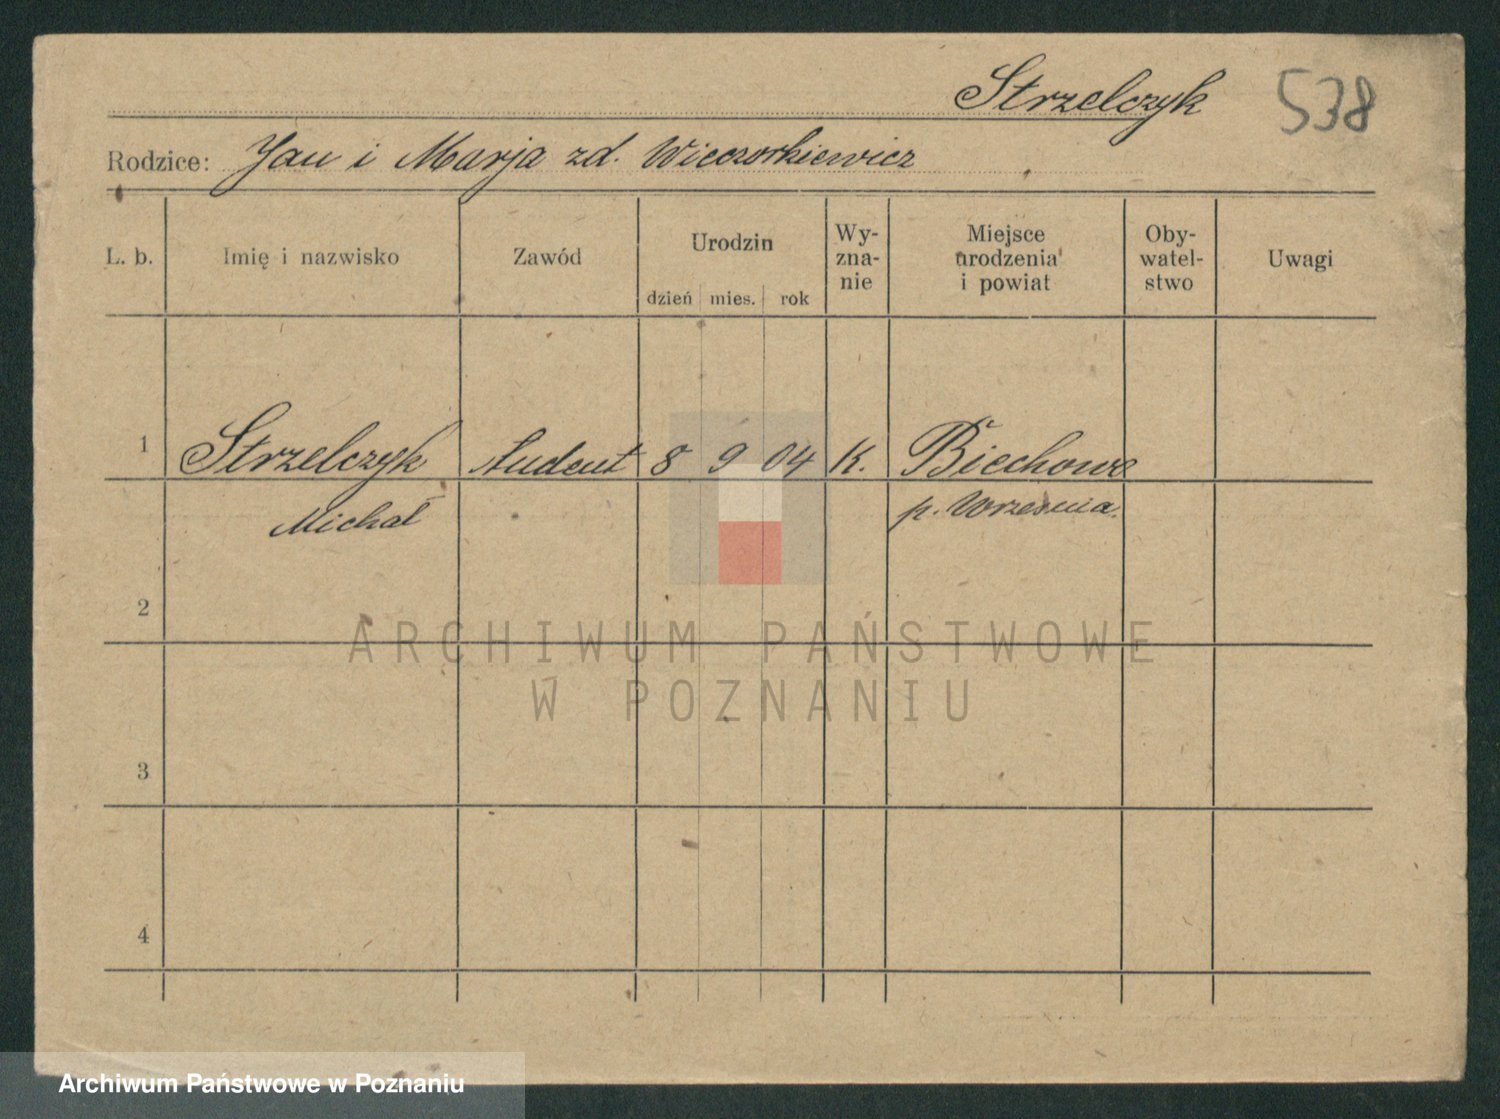 Strzelczyk 538
Rodzice: Jan i Marja zd. Wieczorkiewicz
L. b. Imię i nazwisko Zawód Urodzin dzień mies. rok Wy-zna-nie Miejsce urodzenia i powiat Oby-watel-stwo Uwagi
1 Strzelczyk student 8 9 04 K. Biechowo
Michał p. Września.
2
ARCHIWUM PAŃSTWOWE
W POZNANIU
3
4
Archiwum Państwowe w Poznaniu